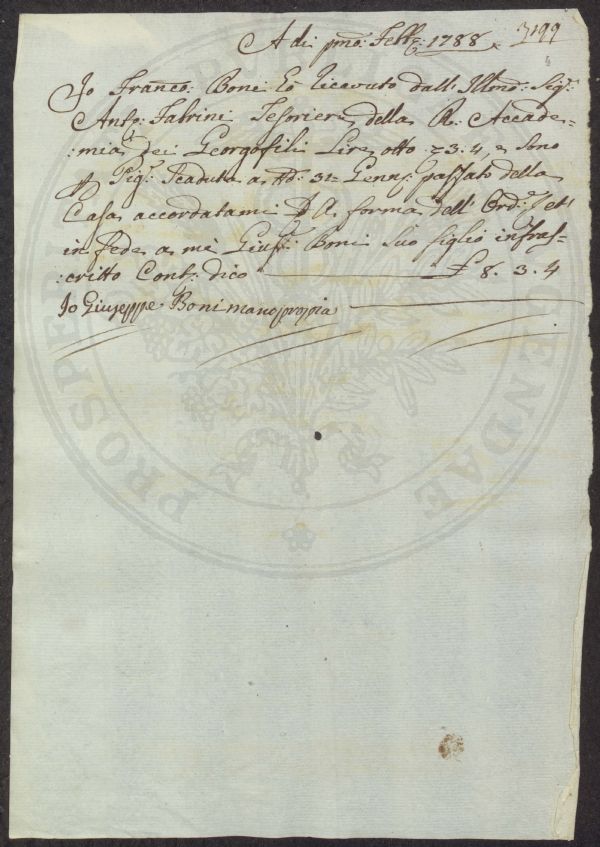 A di pmo: Febb: 1788. 3199
Io Franco: Boni hò ricevuto dall' Illmo: Sig:
Anto: Fabrini Tesoriere della R: Accade=
:mia dei Georgofili Lire otto 3. 4, e sono
p Pig: scaduta a tt: 31 Genn: passato della
Casa accordatami p a forma dell' Ord: et
in fede a mè Gius: Boni suo figlio infras=
:critto Cont: dico £ 8. 3. 4
Io Giuseppe Boni mano propia
PROSPERITATI PUBLICAE AUGENDAE